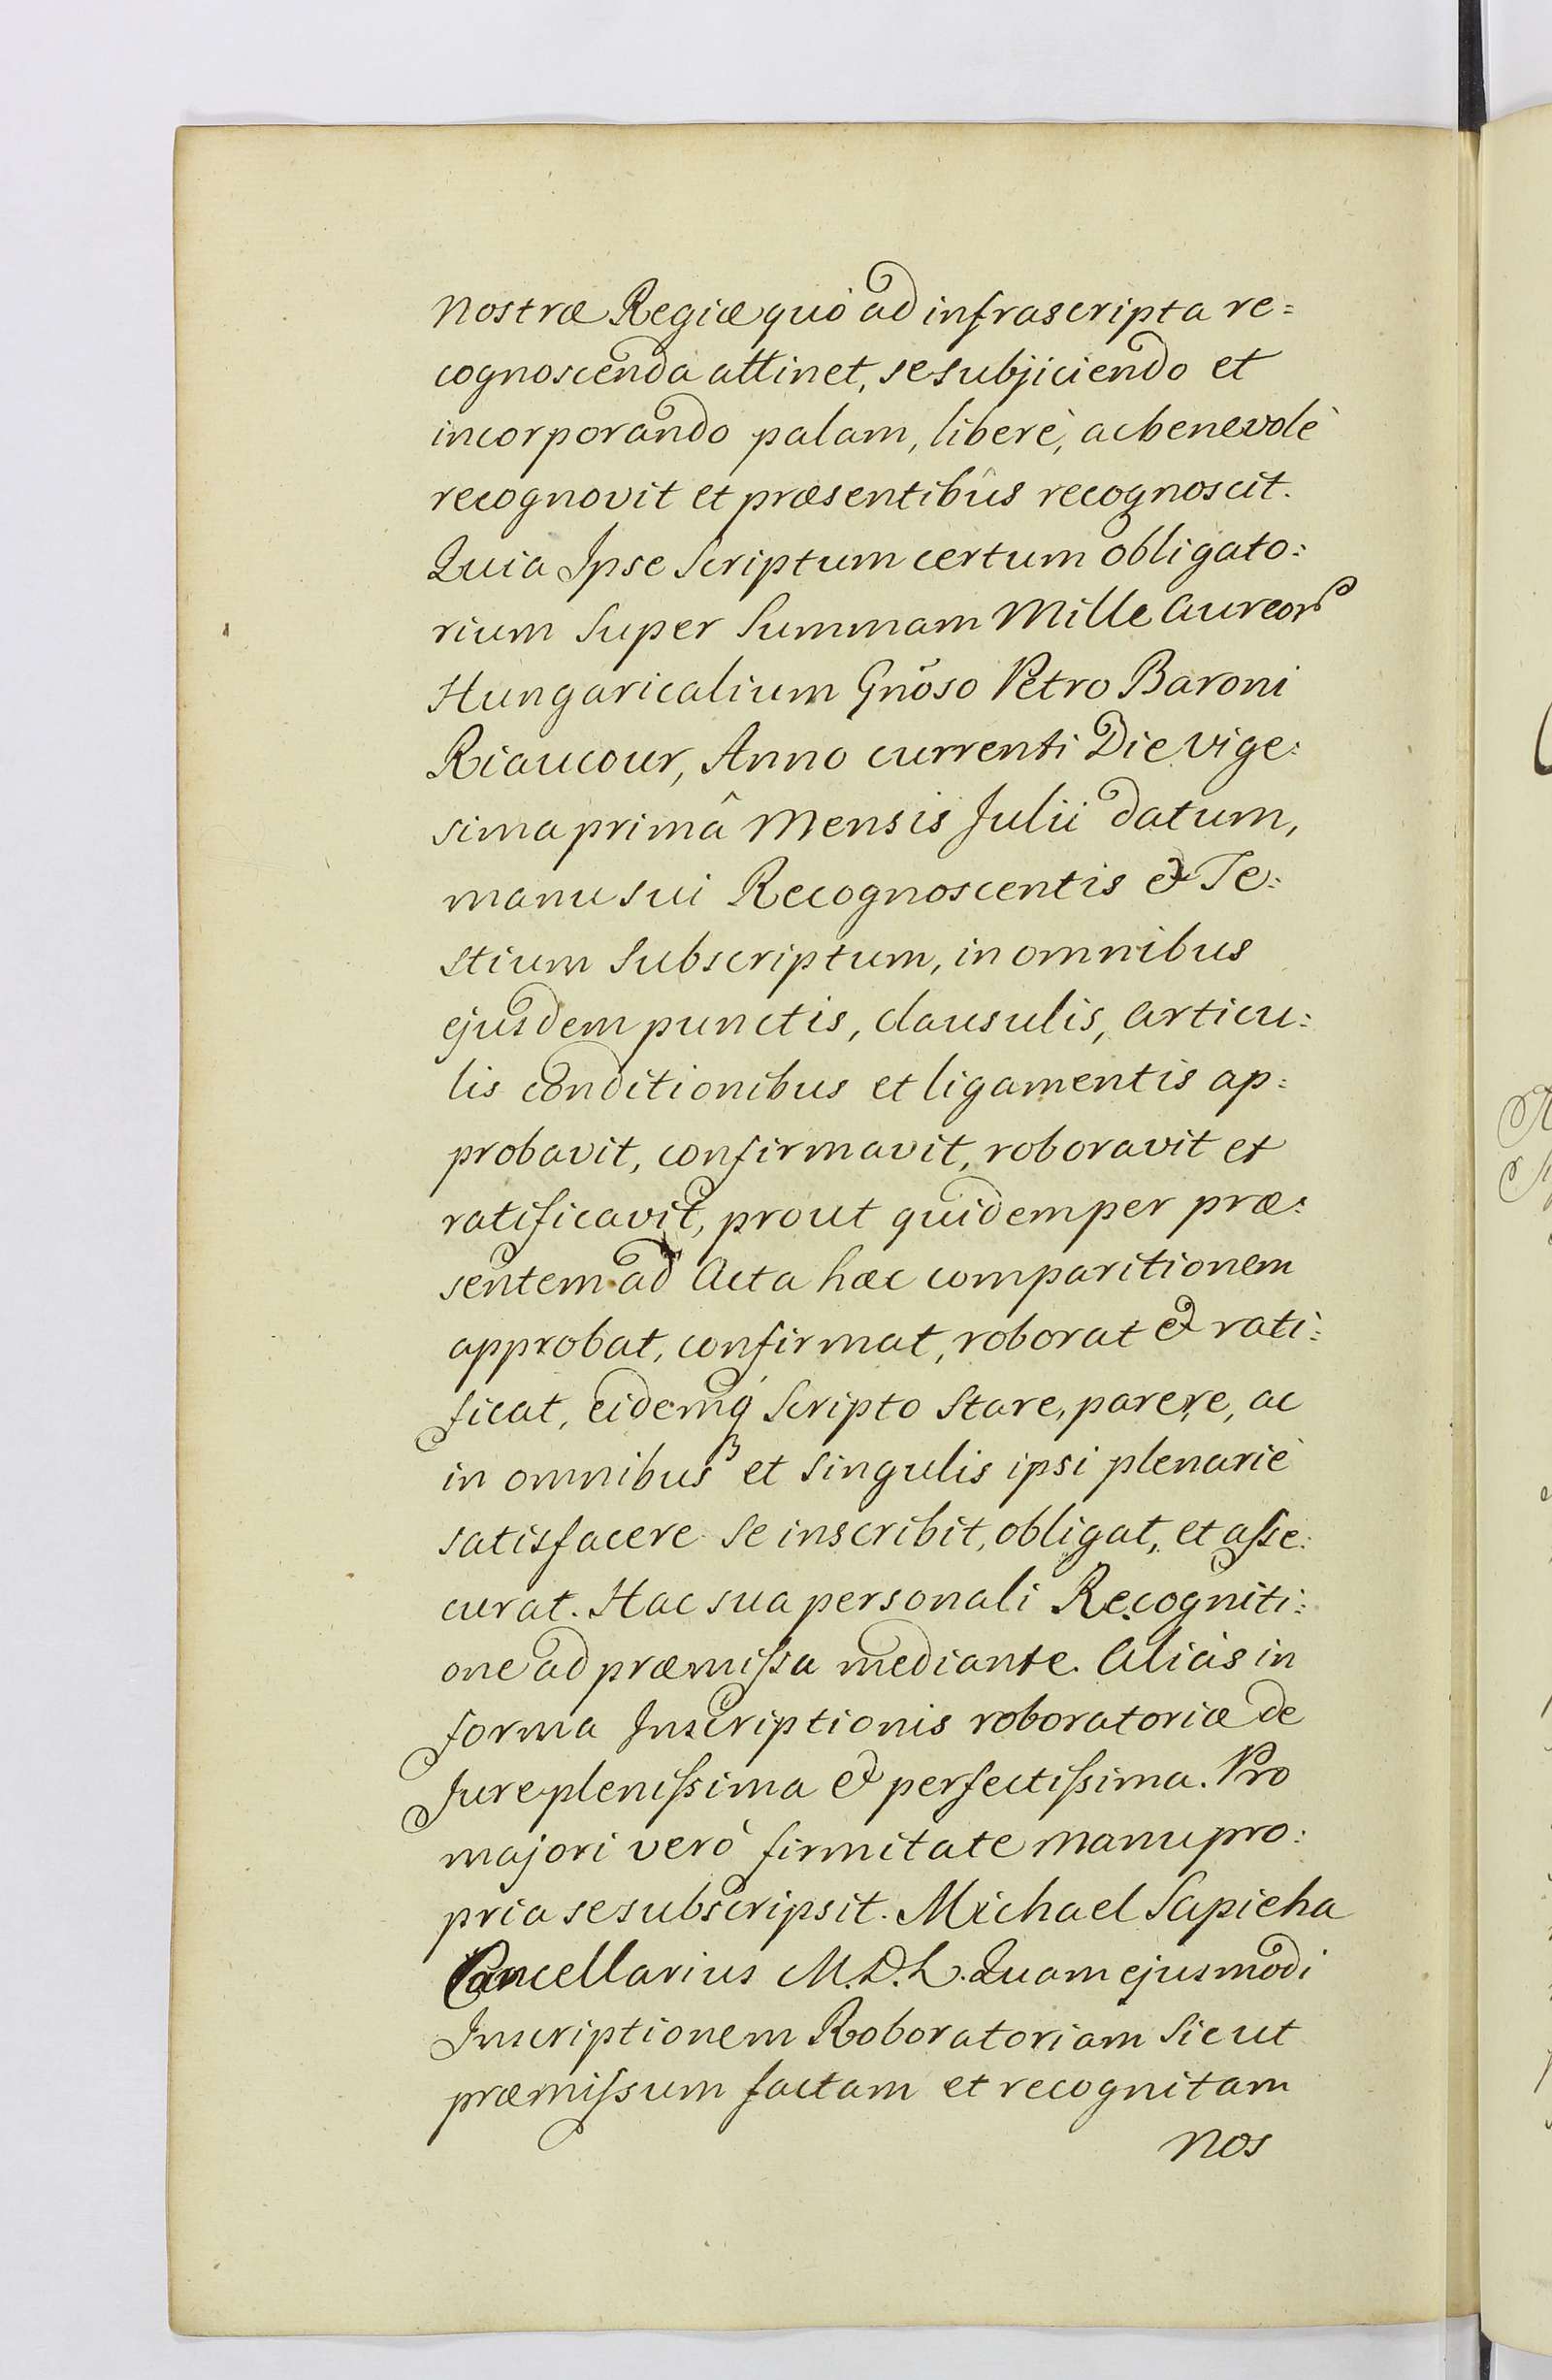 nostræ Regiæ quò ad infrascripta re=
cognoscenda attinet, se subjiciendo et
incorporando palam, liberè, ac benevolè
recognovit et præsentibûs recognoscit.
Quia Ipse Scriptum certum obligato:
rium Super Summam Mille Aureor
Hungaricalium Gnõso Petro Baroni
Riaucour, Anno currenti Die vige:
sima primâ Mensis Julii datum,
manu sui Recognoscentis & Te:
stium Subscriptum, in omnibus
ejusdem punctis, clausulis, articu:
lis conditionibus et ligamentis ap:
probavit, confirmavit, roboravit et
ratificavit, prout quidem per præ:
sentem ad Acta hæc comparitionem
approbat, confirmat, roborat & rati:
ficat, eidemq́ Scripto Stare, parere, ac
in omnibus et Singulis ipsi plenariè
satisfacere Se inscribit, obligat, et aſse:
curat. Hac sua personali Recogniti:
one ad præmiſsa mediante. Aliàs in
forma Inscriptionis roboratoriæ de
Jure pleniſsima & perfectiſsima. Pro
majori verò firmitate manu pro:
pria se subscripsit. Michael Sapieha
Cancellarius M.D.L. Quam ejusmodi
Inscriptionem Roboratoriam Sicut
præmiſsum factam et recognitam
nos